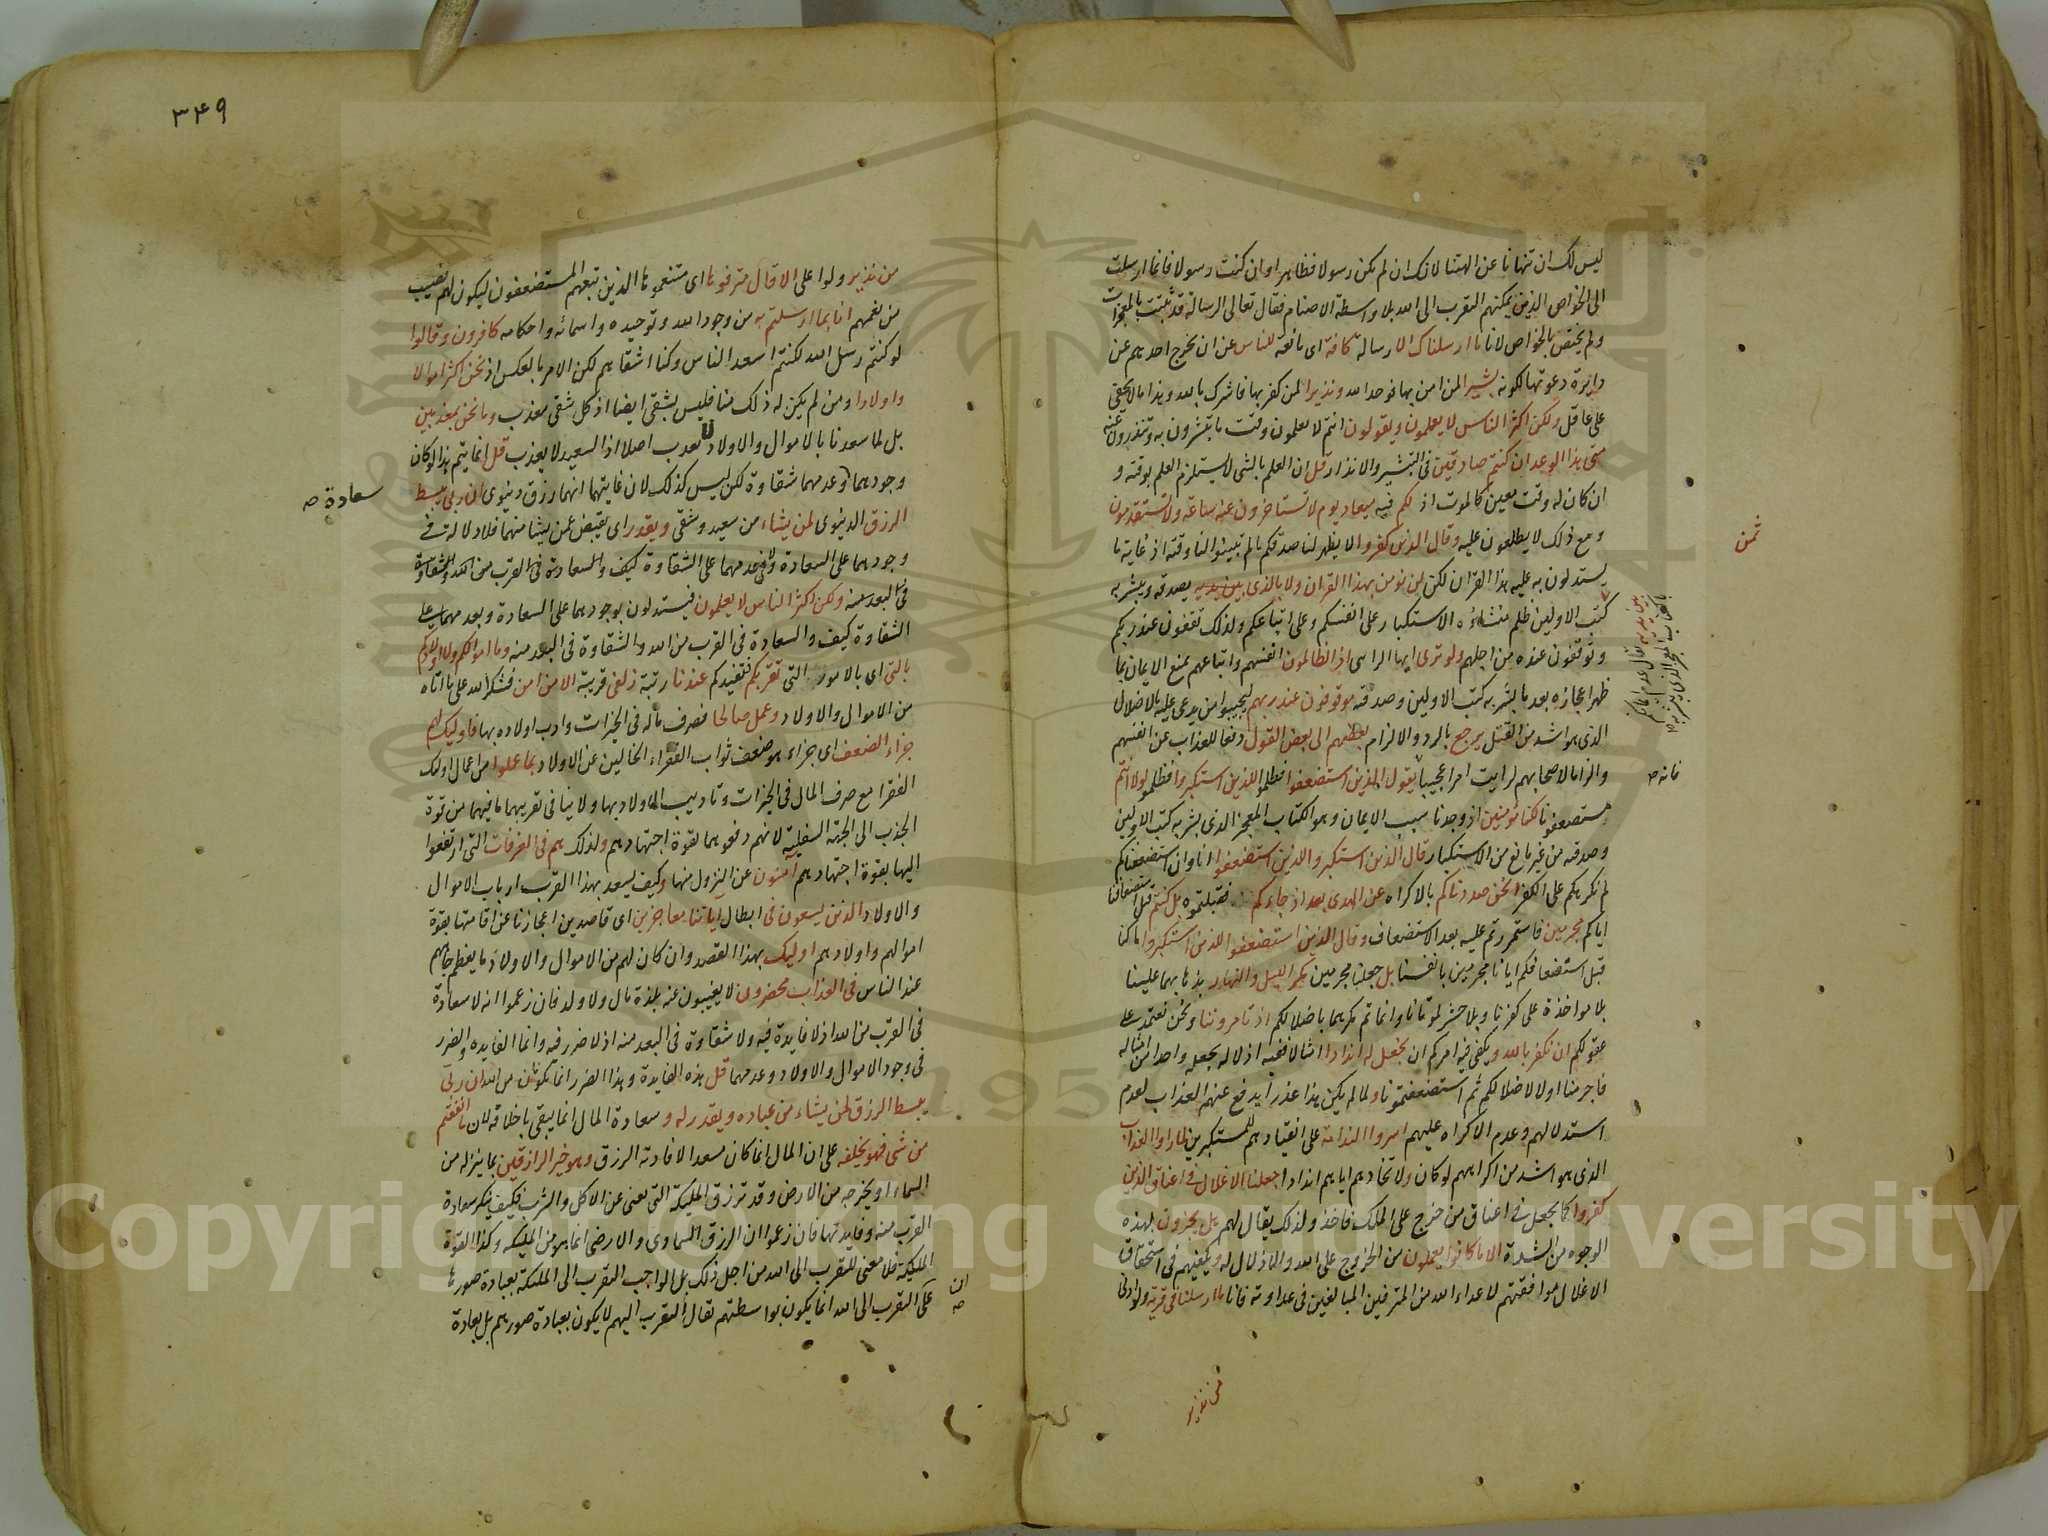 ليس لك ان تنهانا عن الهتنا لانك ان لم تكن رسولا فظاهر وان كنت رسولا فانما ارسلت
الى الخواص الذين يمكنهم التقرب الى الله بلا واسطة الاصنام فقال تعالى الرسالة قد ثبتت بالمعجزات
ولم يختص بالخواص لانا ما ارسلناك الا رسالة كافة اى مانعة للناس عن ان يخرج احد منهم عن
دايرة دعوتها لكونه بشيرا لمن امن بها فوحد الله ونذيرا لمن كفر بها فاشرك بالله وهذا ما لا يخفى
على عاقل ولكن اكثر الناس لا يعلمون ويقولون انتم لا تعلمون وقت ما تبشرون به وتنذرون عنه
متى هذا الوعد ان كنتم صادقين فى التبشير والانذار قل ان العلم بالشى لا يستلزم العلم بوقته و
ان كان له وقت معين كالموت اذ لكم فيه ميعاد يوم لا تستاخرون عنه ساعة ولا تستقدمون
ومع ذلك لا يطلعون عليه وقال الذين كفروا لا يظهر لنا صدقكم ما لم تبينوا لنا وقته اذ غاية ما
يستدلون به عليه هذا القران لكن لن نومن بهذا القران ولا بالذى بين يديه يصدقه ويبشر به
كتب الاولين ظلم منشاؤه الاستكبار على انفسكم وعلى اتباعكم ولذلك تقفون عند ربكم
وتوقفون عنده من اجلهم ولو ترى ايها الراى اذ الظالمون انفسهم واتباعهم بمنع الايمان بما
ظهر اعجازه بعد ما بشر به كتب الاولين وصدقه موقوفون عند ربهم ليجيبوا من يدعى عليه بالاضلال
الذى هو اشد من القتل يرجع بالرد والالزام بعضهم الى بعض القول دفعا للعذاب عن انفسهم
والزاما لاصحابهم لرايت امرا عجيبا يقول الذين استضعفوا فظلموا للذين استكبروا فظلموا لولا انتم
مستضعفونا لكنا مؤمنين اذ وجدنا سبب الايمان وهو الكتاب المعجز الذى بشر به كتب الاولين
وصدقه من غير مانع من الاستكبار قال الذين استكبروا للذين استضعفوا انا وان استضعفناكم
لم نكرهكم على الكفر انحن صددناكم بالاكراه عن الهدى بعد اذ جاءكم فقبلتموه بل كنتم قبل استضعافنا
اياكم مجرمين فاستمررتم عليه بعد الاستضعاف وقال الذين استضعفوا للذين استكبروا ما كنا
قبل استضعافكم ايانا مجرمين بانفسنا بل جعلنا مجرمين مكر الليل والنهار بذهابهما علينا
بلا مواخذة على كفرنا وبلا حشر لموتانا وانما تم مكرهما باضلالكم اذ تامروننا ونحن نعتمد على
عقولكم ان نكفر بالله ويكفى فيه امركم ان نجعل له اندادا امثالا ففيه اذلاله بجعله واحدا من امثاله
فاجرمنا اولا لاضلالكم ثم استضعفتمونا ولما لم يكن هذا عذرا يدفع عنهم العذاب لعدم
استدلالهم وعدم الاكراه عليهم اسروا الندامة على انقيادهم للمستكبرين لما راوا العذاب
الذى هو اشد من اكراههم لو كان ولاتخاذهم اياهم اندادا جعلنا الاغلال فى اعناق الذين
كفروا كما يجعل فى اعناق من خرج على الملك فاخذ ولذلك يقال لهم هل يجزون بهذه
الوجوه من الشدة الا ما كانوا يعملون من الخروج على الله والاذلال له ويكفيهم فى استحقاق
الاغلال موافقتهم لاعداء الله من المترفين المبالغين فى عداوته فانا ما ارسلنا فى قرية ولو ادنى
من نذير
ثمن
فانه صح
٣٤٩
من نذير ولوا على الا قال مترفوها اى متنعموها الذين تبعهم المستضعفون ليكون لهم نصيب
من نعمهم انا بما ارسلتم به من وجود الله وتوحيده واسمائه واحكامه كافرون وقالوا
لو كنتم رسل الله لكنتم اسعد الناس وكنا اشقاهم لكن الامر بالعكس اذ نحن اكثر اموالا
واولادا ومن لم يكن له ذلك منا فليس بشقى ايضا اذ كل شقى معذب وما نحن بمعذبين
بل لما سعدنا بالاموال والاولاد لا نعذب اصلا اذ السعيد لا يعذب قل انما يتم هذا لو كان
وجودهما وعدمهما شقاوة لكن ليس كذلك لان غايتهما انهما رزق دنيوى ان ربى يبسط
الرزق الدنيوى لمن يشاء من سعيد وشقى ويقدر اى يقبض عمن يشا منهما فلا دلالة فى
وجودهما على السعادة ولا فى عدمهما على الشقاوة كيف والسعادة فى القرب من الله والشقاوة
فى البعد منه ولكن اكثر الناس لا يعلمون فيستدلون بوجودهما على السعادة وبعدمهما على
الشقاوة كيف والسعادة فى القرب من الله والشقاوة فى البعد منه وما اموالكم ولا اولادكم
بالتى اى بالامور التى تقربكم فتفيدكم عندنا رتبة زلفى قريبة الا من امن فشكر الله على ما اتاه
من الاموال والاولاد وعمل صالحا فصرف ماله فى الخيرات وادب اولاده بها فاوليك لهم
جزاء الضعف اى جزاء هو ضعف ثواب الفقراء الخالين عن الاولاد بما عملوا من اعمال اولئك
الفقرا مع صرف المال فى الخيرات وتاديب الاولاد بها ولا ينافى تقريبهما ما فيهما من قوة
الجذب الى الجهة السفلية لانهم دفعوهما لقوة اجتهادهم ولذلك هم فى الغرفات التى ارتفعوا
اليها بقوة اجتهادهم آمنون عن النزول منها وكيف يسعد بهذا القرب ارباب الاموال
والاولاد الذين يسعون فى ابطال اياتنا معاجزين اى قاصدين اعجازنا عن اقامتها بقوة
اموالهم واولادهم اوليك بهذا القصد وان كان لهم من الاموال والاولاد ما يعظم جاههم
عند الناس فى العذاب محضرون لا يغيبون عنه بلذة مال ولا ولد فان زعموا انه لا سعادة
فى القرب من الله اذ لا فايدة فيه ولا شقاوة فى البعد منه اذ لا ضرر فيه وانما الفايدة والضرر
فى وجود الاموال والاولاد وعدمهما قل هذه الفايدة وهذا الضرر انما يكونان من الله ان ربى
يبسط الرزق لمن يشاء من عباده ويقدر له وسعادة المال انما يبقى باخلافه لان ما انفقتم
من شى فهو يخلفه على ان المال انما كان مسعدا لافادته الرزق وهو خير الرازقين بما ينزله من
السماء او يخرجه من الارض وقد ترزق المليكة التى تغنى عن الاكل والشرب فكيف ينكر سعادة
القرب منه وفايدتها فان زعموا ان الرزق السماوى والارضى انما هو من المليكة وكذا القوة
الملكية فلا معنى للتقرب الى الله من اجل ذلك بل الواجب التقرب الى الملئكة بعبادة صورها
على التقرب الى الله انما يكون بواسطتهم تقال التقرب اليهم لا يكون بعبادة صورهم بل بعبادة
سعادة صح
ان صح